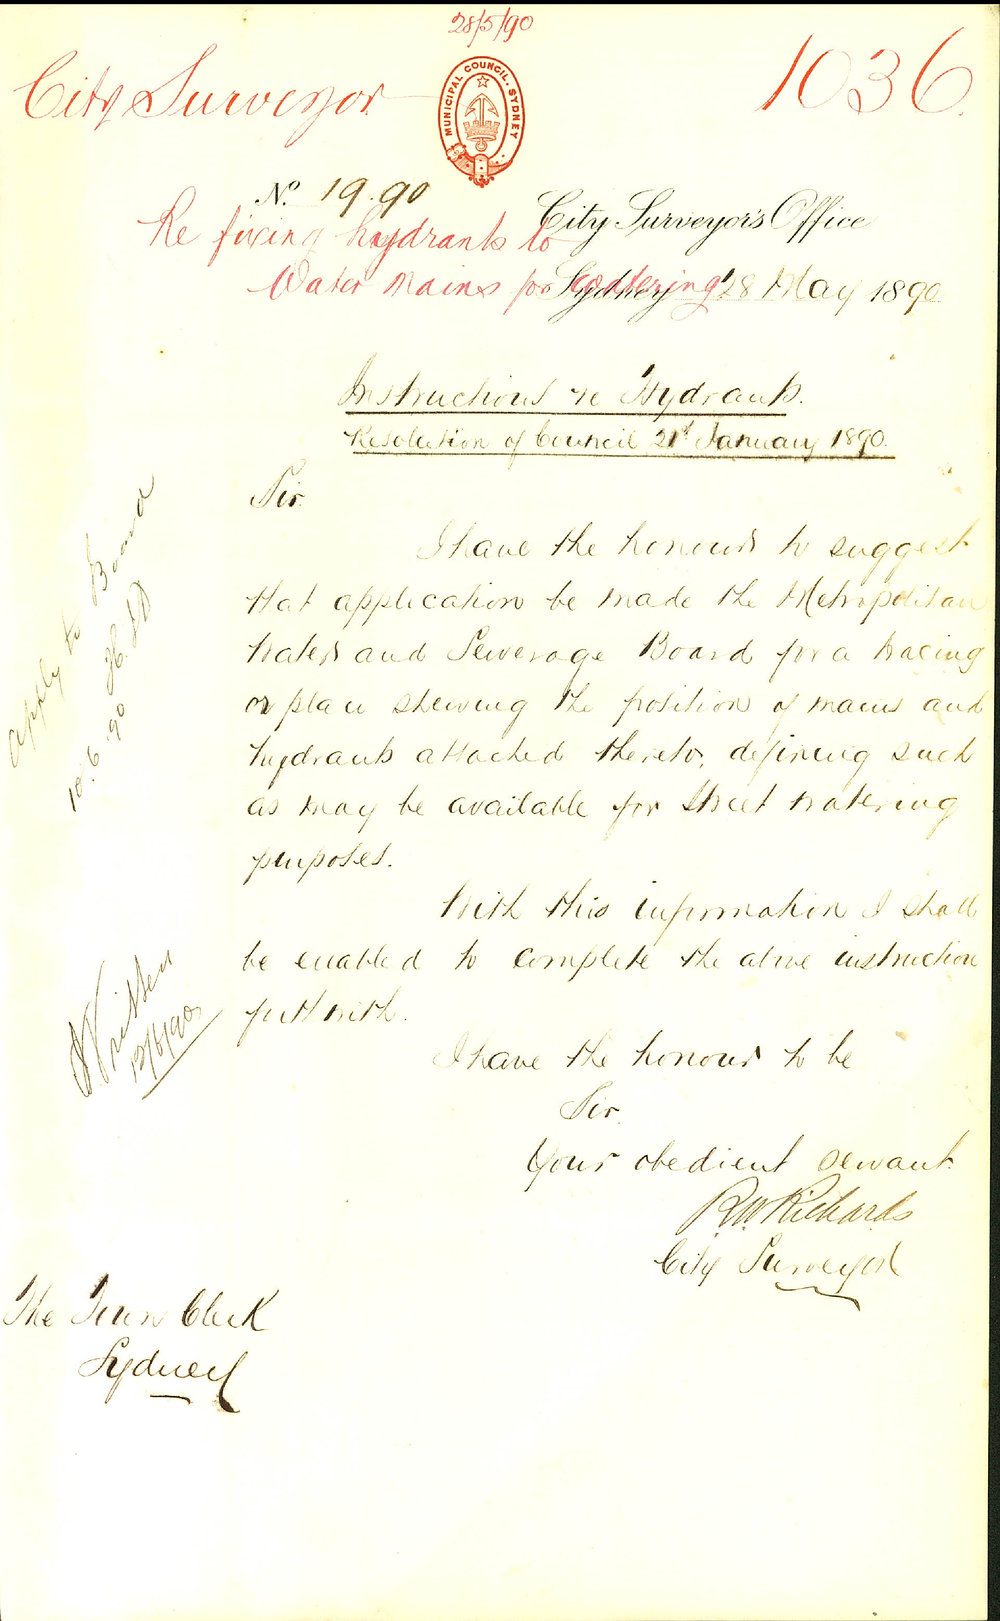 28/5/90
City Surveyor
1036.
MUNICIPAL COUNCIL. SYDNEY
No. 19.90
City Surveyor's Office
Re fixing hydrants to
Water Mains for watering
Sydney 28 May 1890
Instructions re Hydrants.
Resolution of Council 21st January 1890.
Sir
I have the honour to suggest
that application be made the Metropolitan
Water and Sewerage Board for a tracing
or plan shewing the position of mains and
hydrants attached thereto, defining such
as may be available for street watering
purposes.
With this information I shall
be enabled to complete the above instruction
forthwith.
I have the honour to be
Sir.
Your obedient servant.
R W Richards
City Surveyor
The Town Clerk
Sydney
Apply to Board
10.6.90
Written
12/6/90